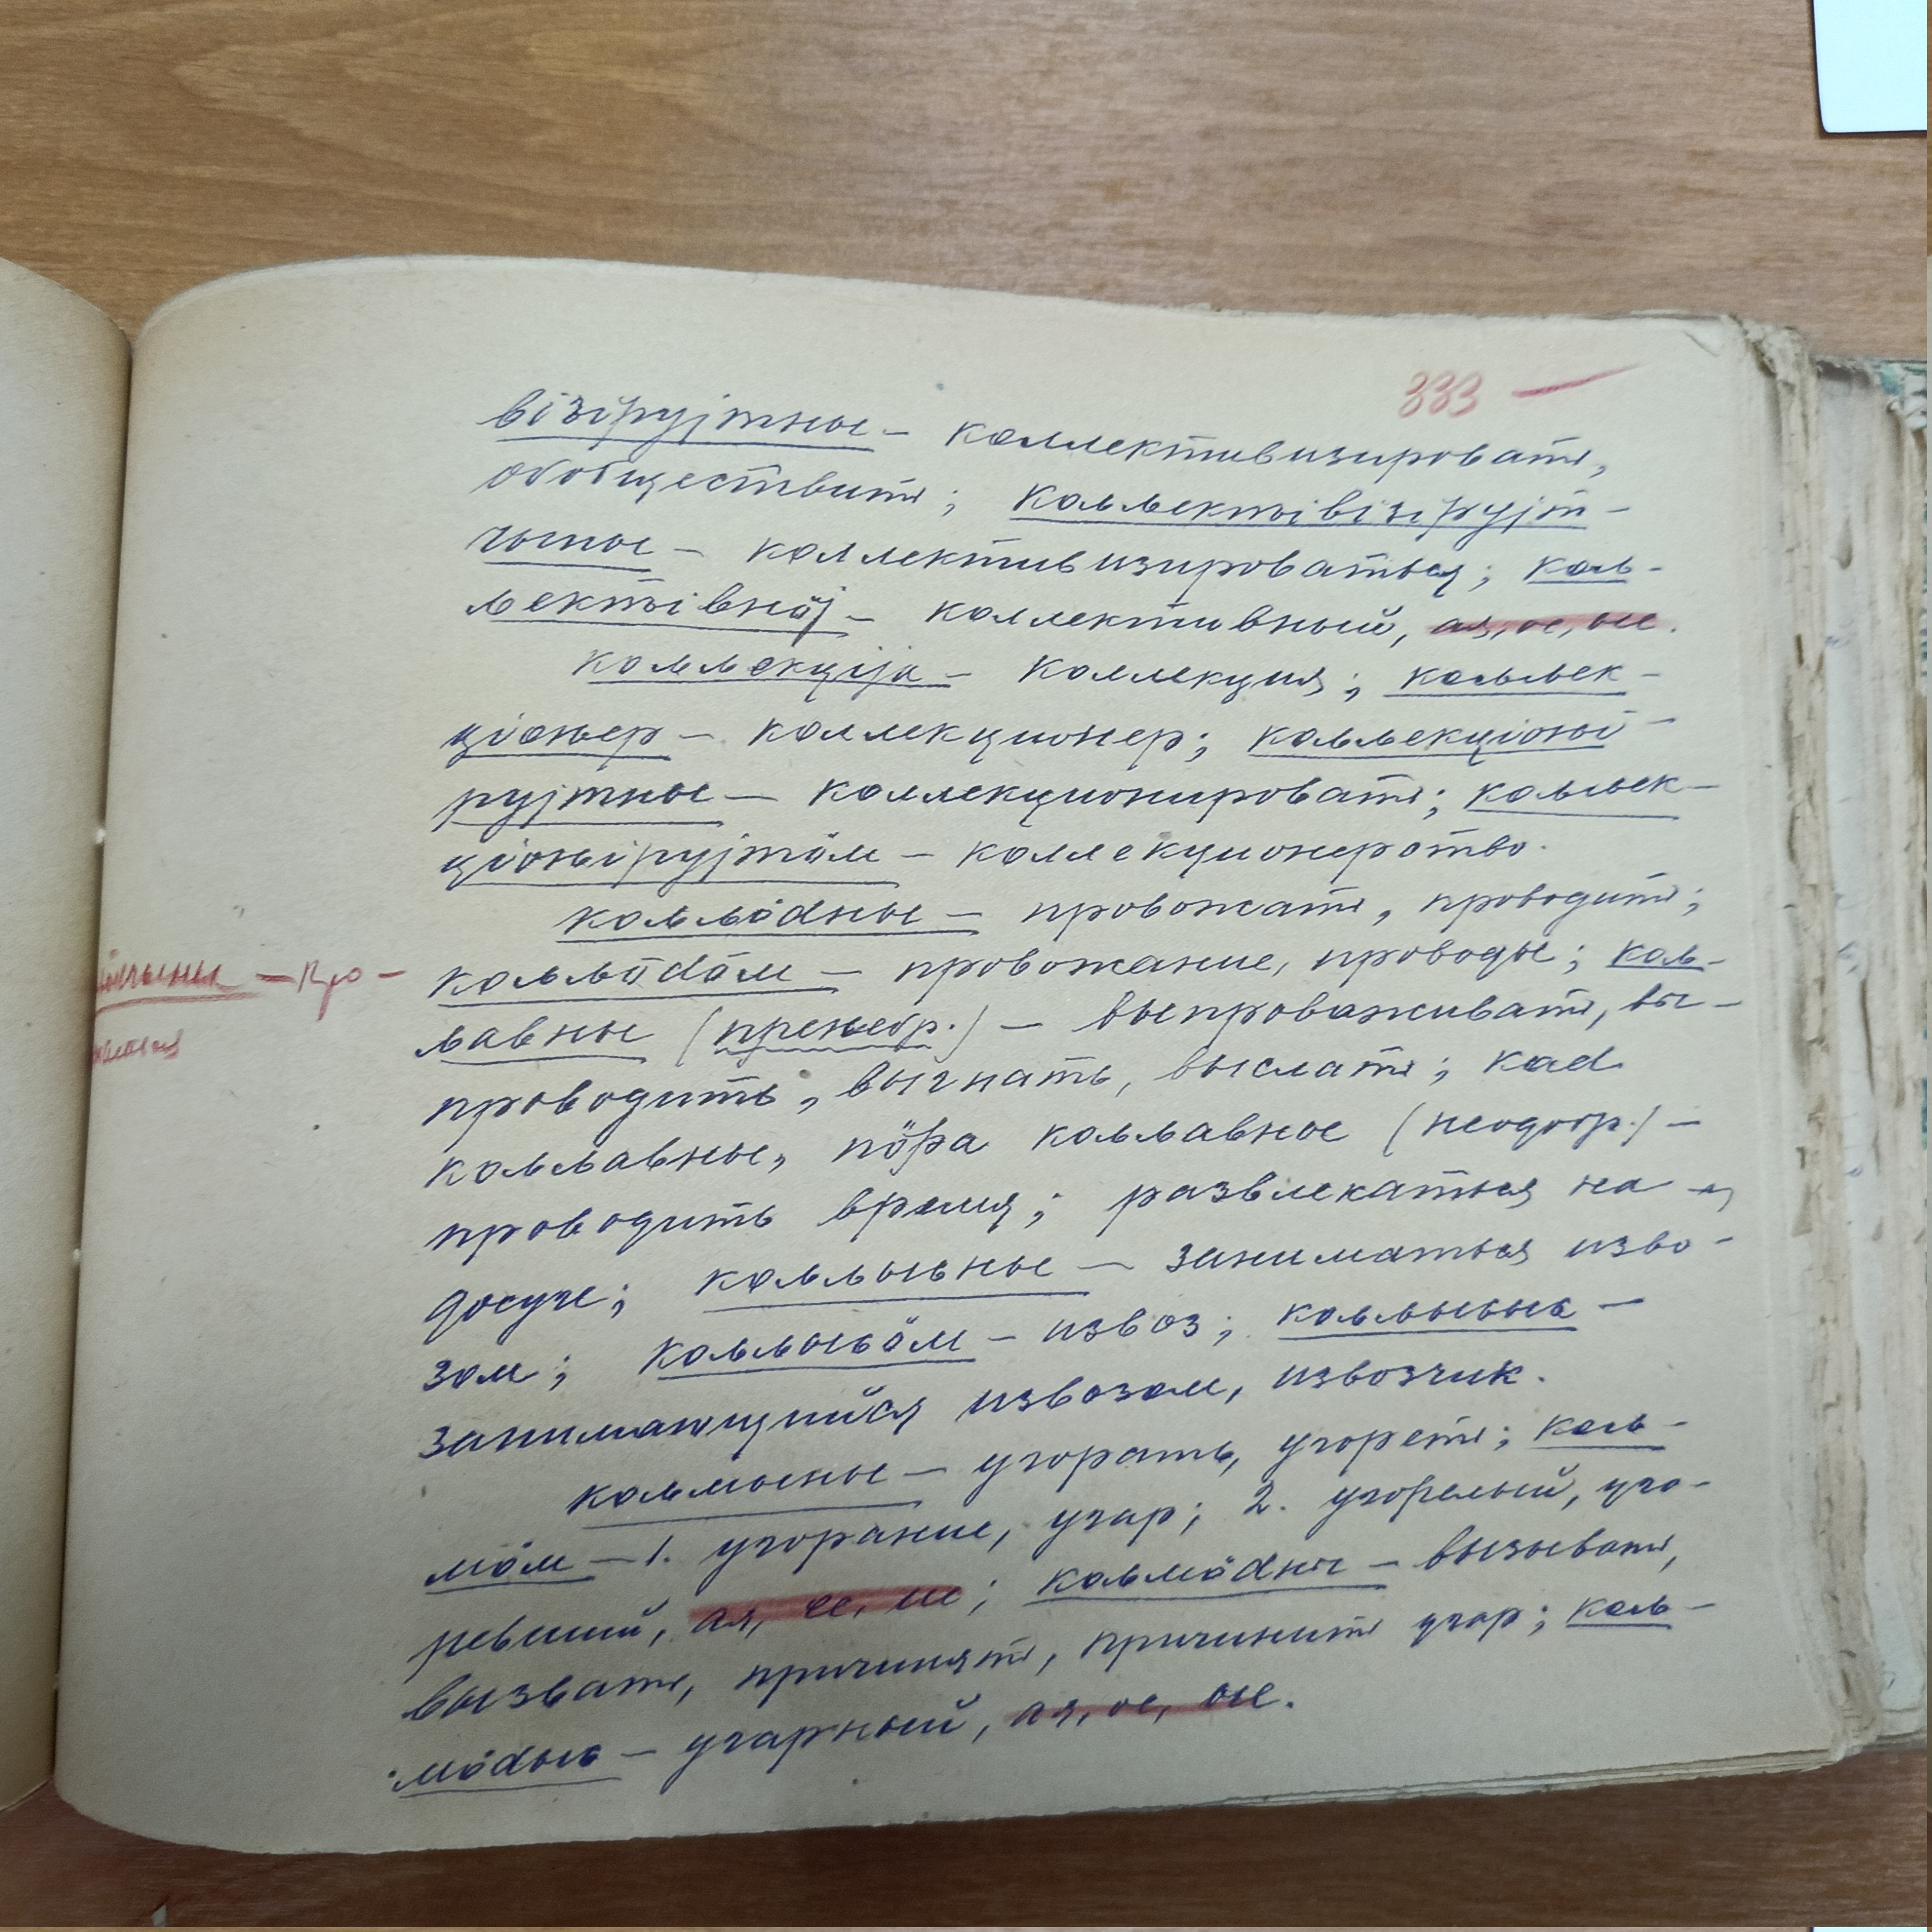 візірујтны – коллективизировать,
обобществить; коԉԉекԏівізірујт-
чыны – коллективизироваться; коԉ-
ԉекԏівнӧј – коллективный, ая, ое, ые.
коԉԉекціја – коллекция; коԉԉек-
ціоԋер – коллекционер; коԉԉекціоԋі-
рујтны – коллекционировать; коԉԉек-
ціоԋірујтӧм – коллекционерство.
коԉԉӧԁны – провожать, проводить;
коԉԉӧԁӧм – провожание, проводы; коԉ-
ԉавны (пренебр.) – выпроваживать, вы-
проводить, выгнать, выслать; каԁ
коԉԉавны, пӧра коԉԉавны (неодобр.) –
проводить время; развлекаться на
досуге; коԉԉыԍны – заниматься изво-
зом; коԉԉыԍӧм – извоз; коԉԉыԍыԍ –
занимающийся извозом, извозчик.
коԉмыны – угорать, угореть; коԉ-
мӧм – 1. угорание, угар; 2. угорелый, уго-
ревший, ая, ее, ие; коԉмӧԁны – вызывать,
вызвать, причинять, причинить угар; коԉ-
мӧԁыԍ – угарный, ая, ое, ые.